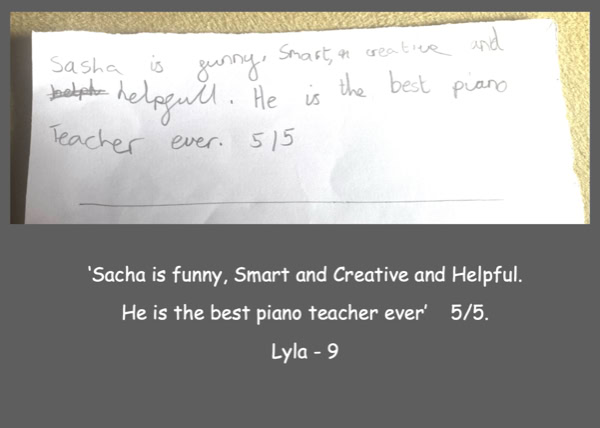 Sasha is funny, Smart, creative and
helpfull. He is the best piano
Teacher ever. 5/5
‘Sacha is funny, Smart and Creative and Helpful.
He is the best piano teacher ever’ 5/5.
Lyla - 9